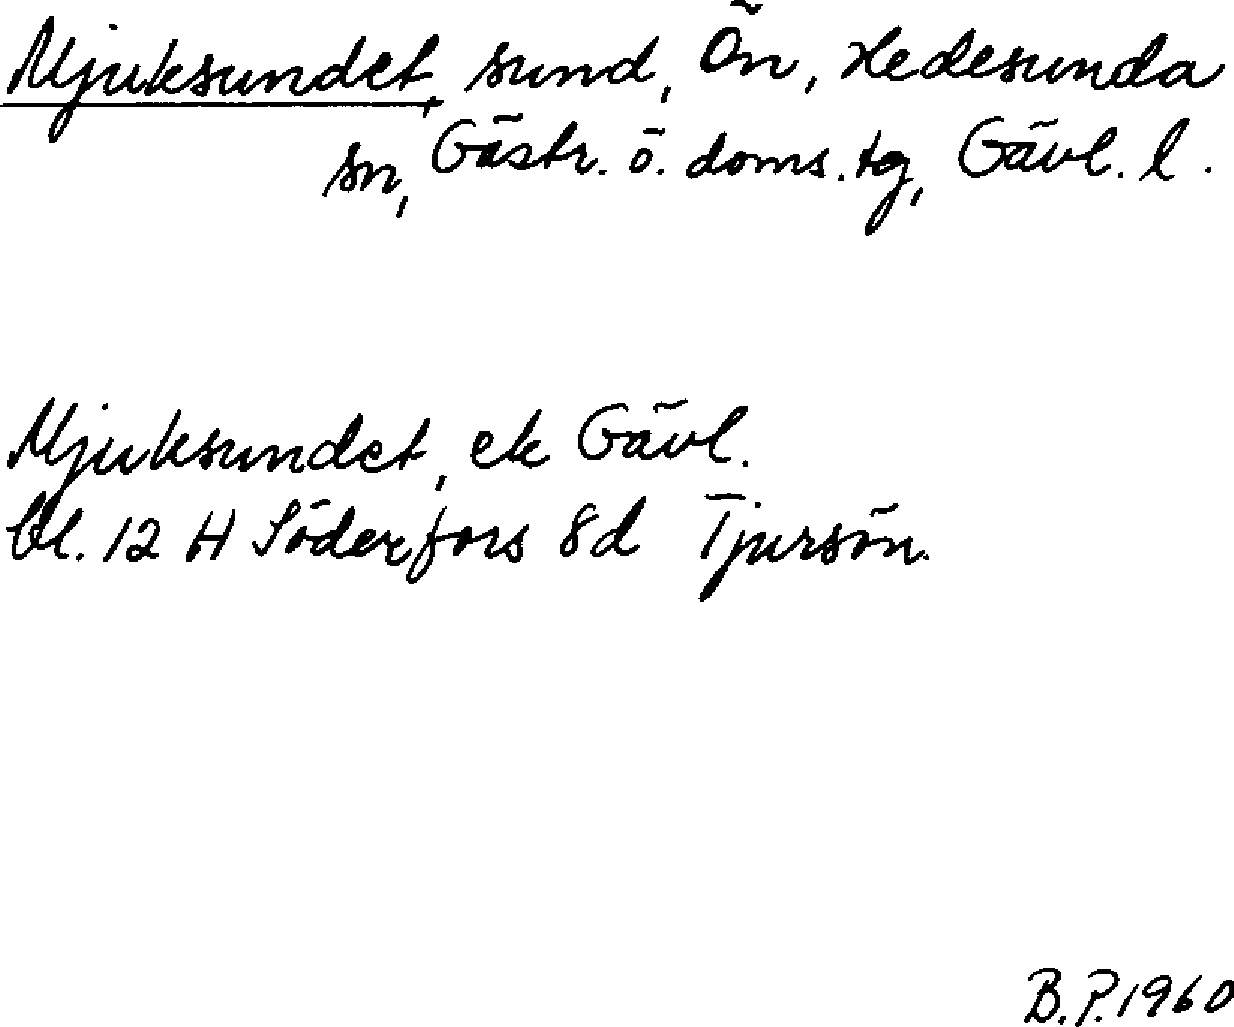 Mjuksundet, sund, Ön, Hedesunda
sn, Gästr. ö. doms. tg, Gävl. l.
Mjuksundet, ek Gävl.
bl. 12 H Söderfors 8d Tjursön.
B.P. 1960